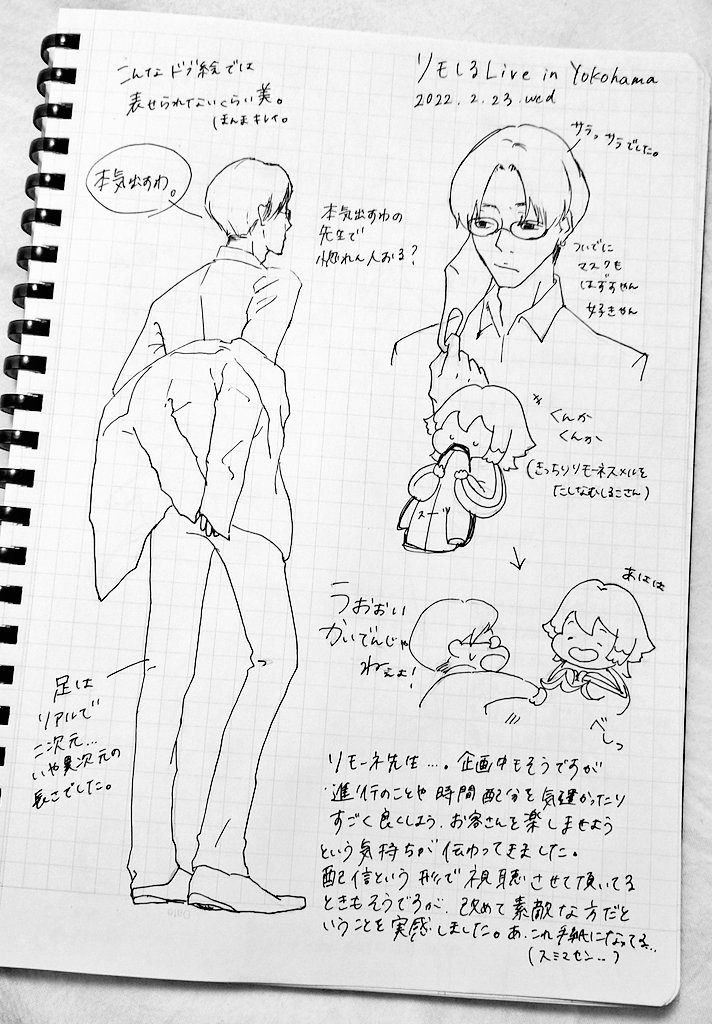 こんなドブ絵では
表せられないくらい美。
(ほんまキレイ。
リモしるLive in Yokohama
2022.2.23.wed
サラッサラでした。
本気出すわ。
本気出すわの
先生で
惚れん人おる?
ついでに
マスクも
はずすやん
好きやん
くんか
くんか
(きっちりリモーネスメルを
たしなむしるこさん)
スーツ
あはは
うおおい
かいでんじゃ
ねぇよ!
べしっ
足は
リアルで
二次元…
いや異次元の
長さでした。
リモーネ先生…。企画中もそうですが
進行のことや時間配分を気遣かったり
すごく良くしよう、お客さんを楽しませよう
という気持ちが伝わってきました。
配信という形で視聴させて頂いてる
ときもそうですが、改めて素敵な方だと
いうことを実感しました。あ、これ手紙になってる..
(スミマセン..)